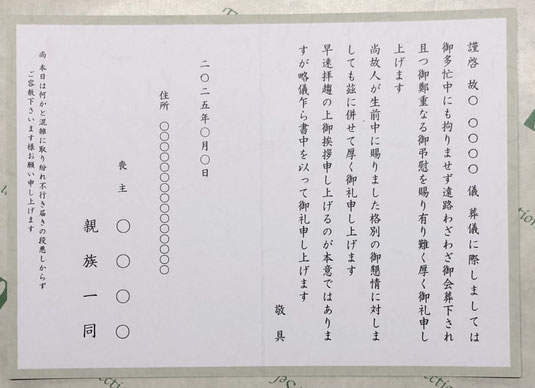 謹啓 故〇 〇〇〇〇 儀 葬儀に際しましては
御多忙中にも拘りませず遠路わざわざ御会葬下され
且つ御鄭重なる御弔慰を賜り有り難く厚く御礼申し
上げます
尚故人が生前中に賜りました格別の御懇情に対しま
しても茲に併せて厚く御礼申し上げます
早速拝趨の上御挨拶申し上げるのが本意ではありま
すが略儀乍ら書中を以って御礼申し上げます
敬具
二〇二五年〇月〇日
住所 〇〇〇〇〇〇〇〇〇〇〇〇〇
喪主 〇〇〇〇
親族一同
尚 本日は何かと混雑に取り紛れ不行き届きの段悪しからず
ご容赦下さいます様お願い申し上げます